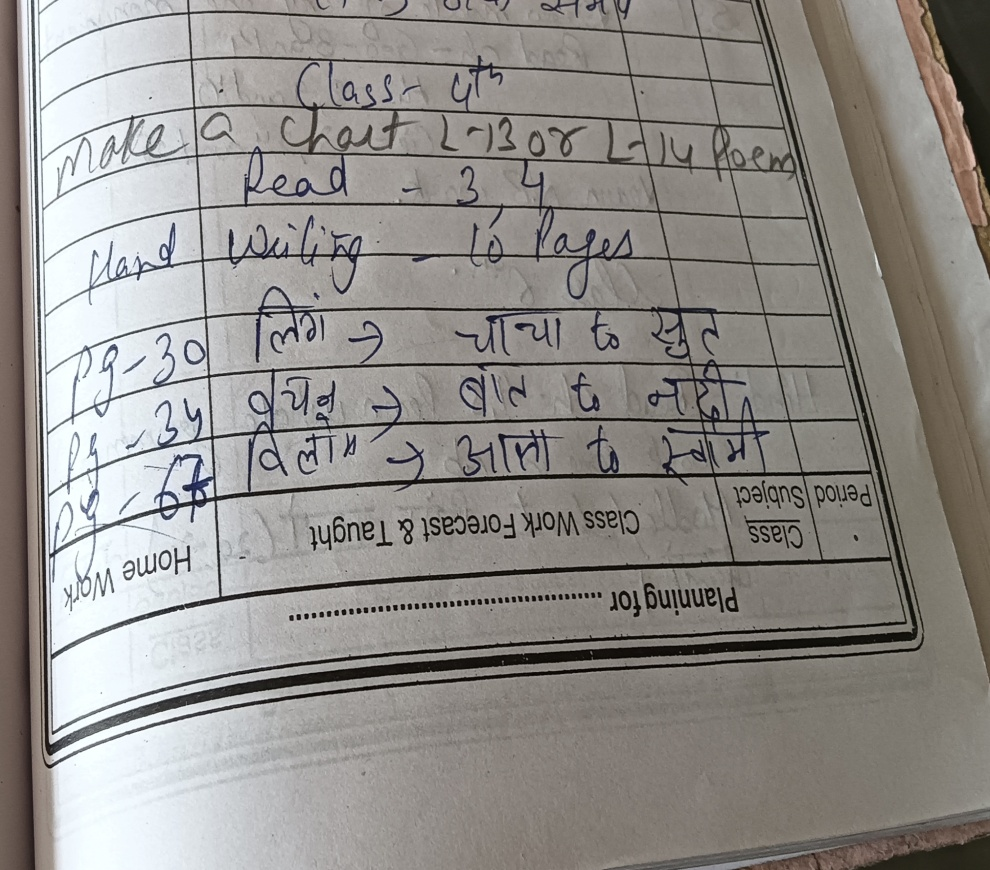 Class - 4th
Make a Chart L-13 or L-14 Poem
Read - 3, 4
Hand Writing - 10 Pages
Pg-30 लिंग → चाचा to सुत
Pg-34 वचन → बात to नदी
Pg-67 विलोम → आना to स्वामी
Period Class Subject Class Work Forecast & Taught Home Work
Planning for